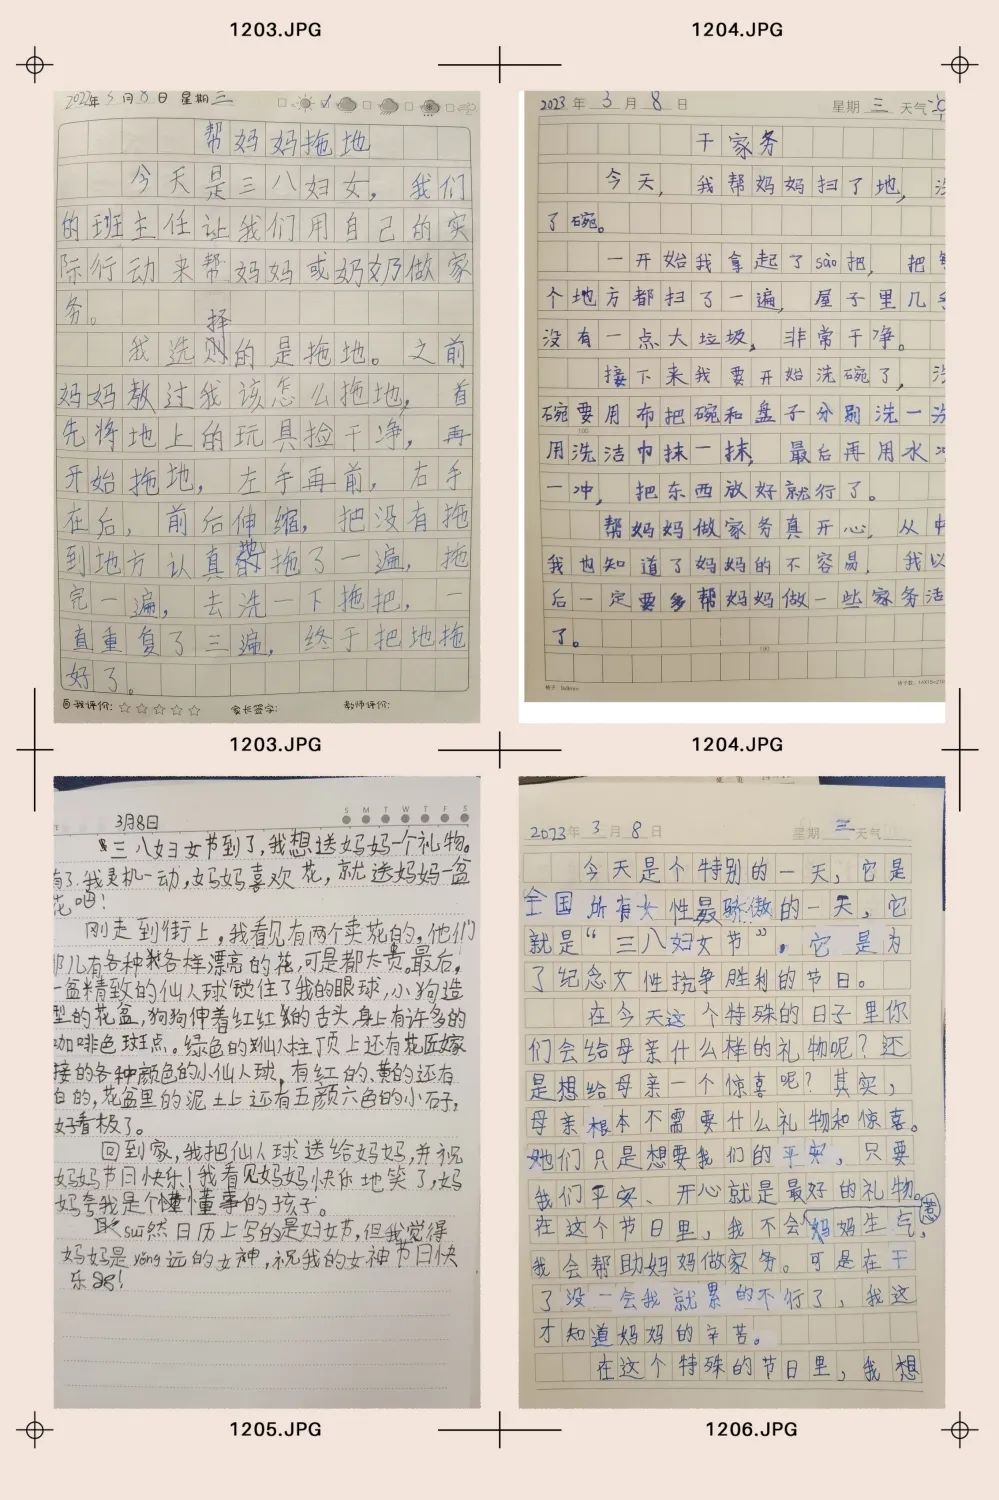 1203.JPG
1204.JPG
2022年 3月8日 星期三
帮妈妈拖地
今天是三八妇女，我们
的班主任让我们用自己的实
际行动来帮妈妈或奶奶做家
务。
择
我选则的是拖地。之前
妈妈教过我该怎么拖地，首
先将地上的玩具捡干净，再
开始拖地，左手再前，右手
在后，前后伸缩，把没有拖
到地方认真地拖了一遍，拖
完一遍，去洗一下拖把，一
直重复了三遍，终于把地拖
好了。
自我评价：☆☆☆☆☆ 家长签字： 教师评价：
2023年 3月8日 星期三 天气
干家务
今天，我帮妈妈扫了地，
了碗。
一开始我拿起了sào把，把
个地方都扫了一遍，屋子里几乎
没有一点大垃圾，非常干净。
接下来我要开始洗碗了，
碗要用布把碗和盘子分别洗一洗
用洗洁巾抹一抹，最后再用水冲
一冲，把东西放好就行了。
帮妈妈做家务真开心，从中
我也知道了妈妈的不容易，我以
后一定要多帮妈妈做一些家务活
了。
1203.JPG
1204.JPG
S M T W T F S
3月8日
三八妇女节到了，我想送妈妈一个礼物。
有了.我灵机一动，妈妈喜欢花，就送妈妈一盆
花吧！
刚走到街上，我看见有两个卖花的，他们
那儿有各种各样漂亮的花，可是都太贵。最后，
一盆精致的仙人球锁住了我的眼球，小狗造
型的花盆，狗狗伸着红红的舌头，身上有许多的
咖啡色斑点。绿色的仙人柱顶上还有花匠嫁
接的各种颜色的小仙人球，有红的、黄的还有
白的，花盆里的泥土上还有五颜六色的小石子，
好看极了。
回到家，我把仙人球送给妈妈，并祝
妈妈节日快乐！我看见妈妈快乐地笑了，妈
妈夸我是个懂事的孩子。
虽suī然日历上写的是妇女节，但我觉得
妈妈是yǒng远的女神，祝我的女神节日快
乐！
2023年 3月8日 星期三 天气
今天是个特别的一天，它是
全国所有女性最骄傲的一天，它
就是“三八妇女节”，它是为
了纪念女性抗争胜利的节日。
在今天这个特殊的日子里你
们会给母亲什么样的礼物呢？还
是想给母亲一个惊喜呢？其实，
母亲根本不需要什么礼物和惊喜。
她们只是想要我们的平安，只要
我们平安、开心就是最好的礼物。
在这个节日里，我不会惹妈妈生气，
我会帮助妈妈做家务。可是在干
了没一会我就累的不行了，我这
才知道妈妈的辛苦。
在这个特殊的节日里，我想
1205.JPG
1206.JPG